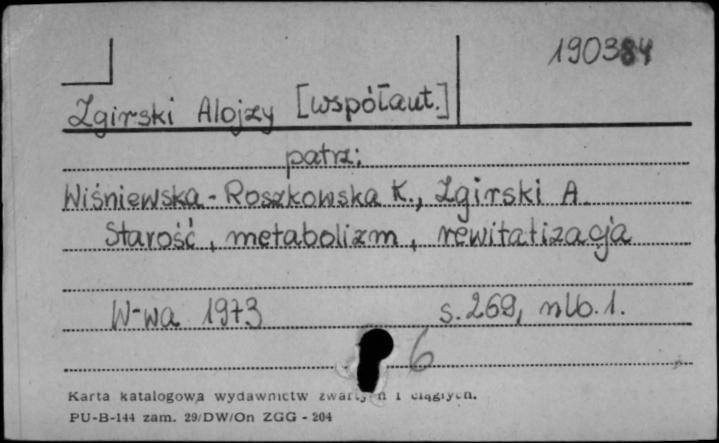 190384
Zgirski Alojzy [współaut.]
patrz:
Wiśniewska-Roszkowska K., Zgirski A.
Starość, metabolizm, rewitalizacja
W-wa 1973 s. 269, nlb. 1.
6
Karta katalogowa wydawnictw zwartych i ciągłych.
PU-B-144 zam. 29/DW/On ZGG - 204